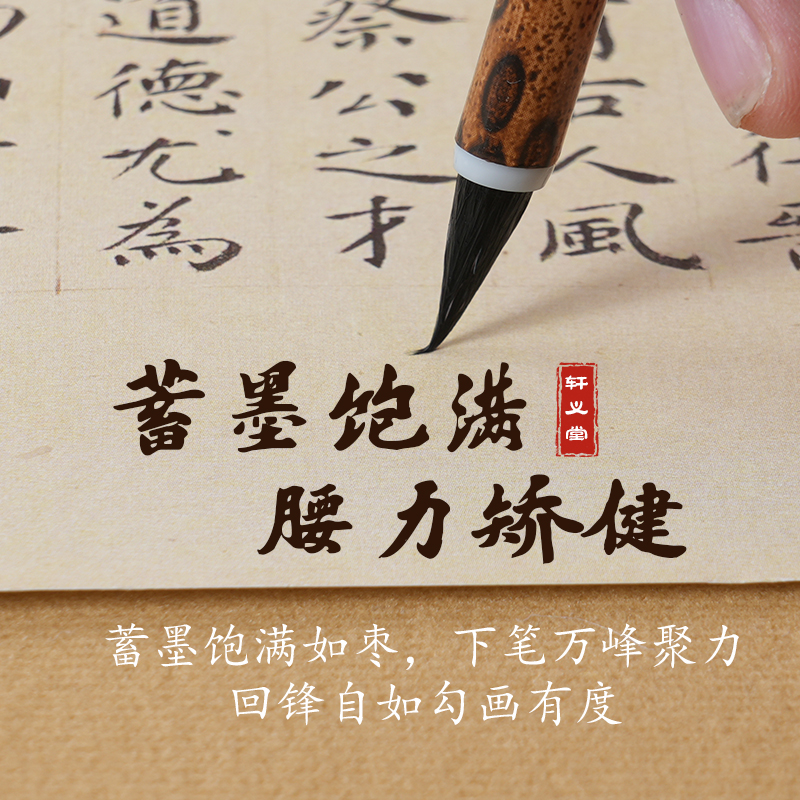 道德尤為
祭公之才
石人風
蓄墨饱满
轩义堂
腰力矫健
蓄墨饱满如枣，下笔万峰聚力
回锋自如勾画有度